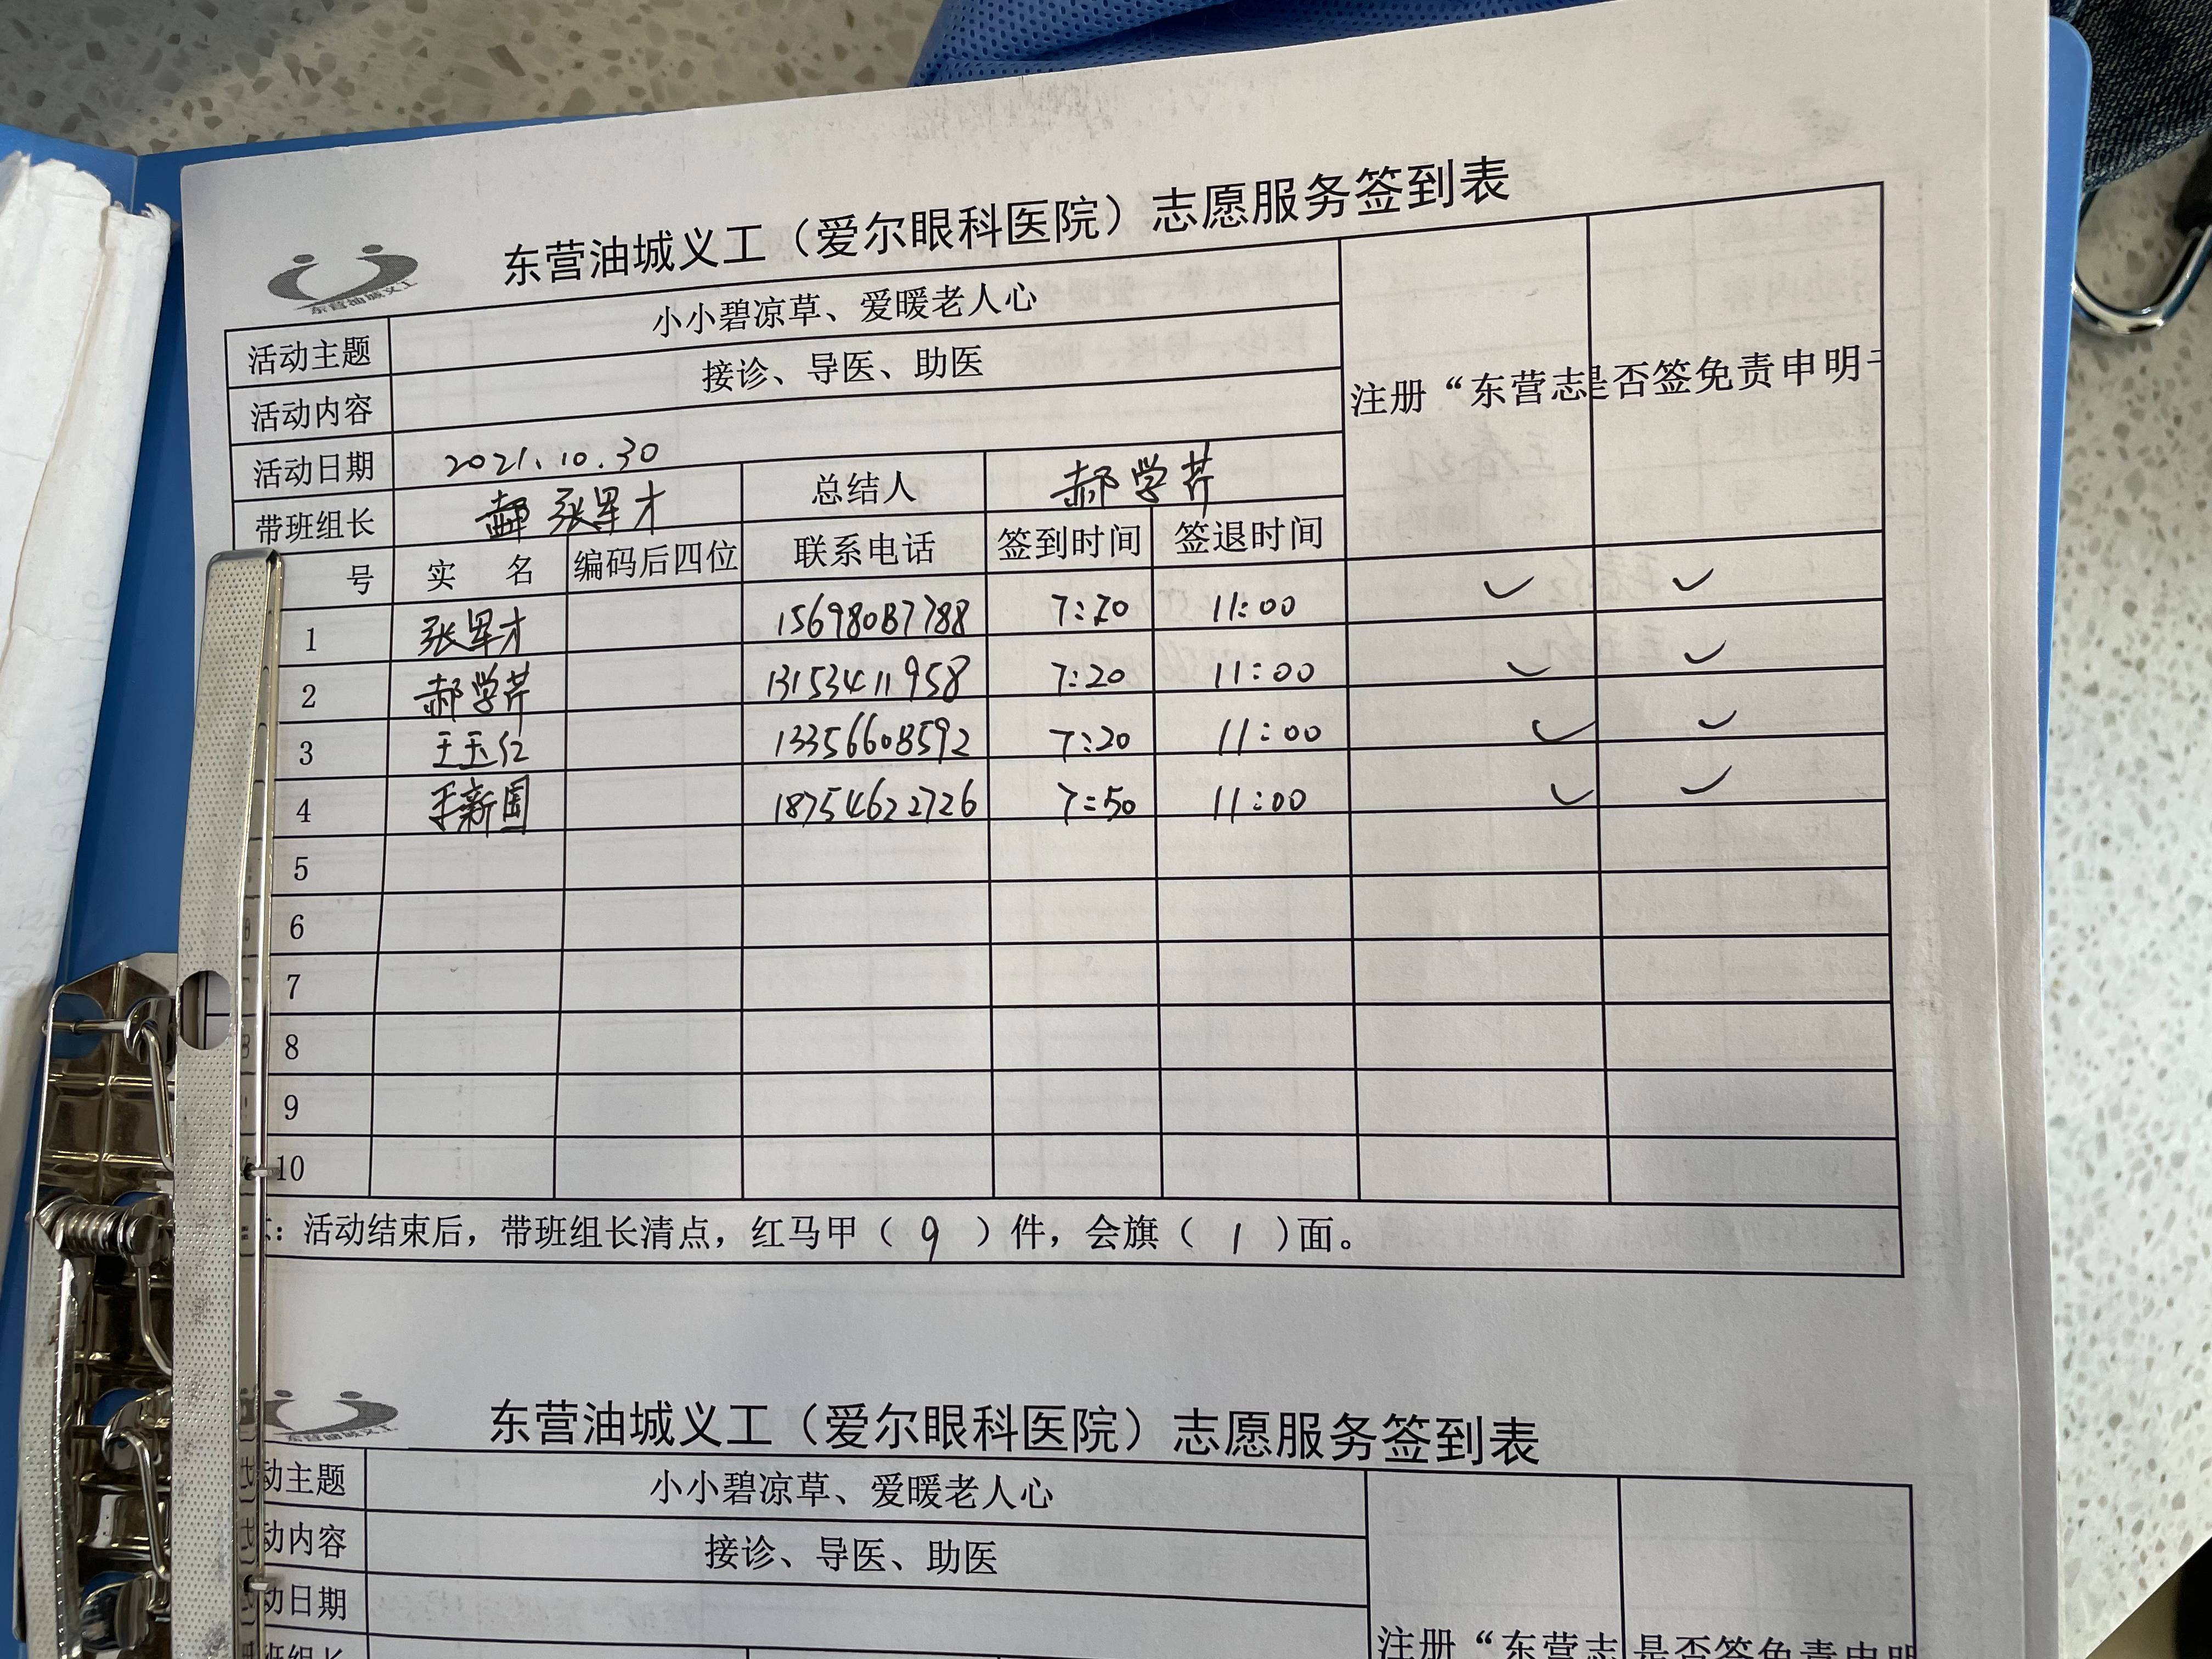 东营油城义工（爱尔眼科医院）志愿服务签到表
东营油城义工
活动主题 小小碧凉草、爱暖老人心
活动内容 接诊、导医、助医
注册“东营志 是否签免责申明
活动日期 2021.10.30
带班组长 张军才 总结人 郝学芹
号 实 名 编码后四位 联系电话 签到时间 签退时间
1 张军才 15698087788 7:20 11:00 ✓ ✓
2 郝学芹 13153411958 7:20 11:00 ✓ ✓
3 王玉红 13356608592 7:20 11:00 ✓ ✓
4 王新国 18754622726 7:50 11:00 ✓ ✓
5
6
7
8
9
10
：活动结束后，带班组长清点，红马甲（ 9 ）件，会旗（ 1 )面。
东营油城义工（爱尔眼科医院）志愿服务签到表
东营油城义工
动主题 小小碧凉草、爱暖老人心
动内容 接诊、导医、助医
动日期
班组长
注册“东营志 是否签免责申明